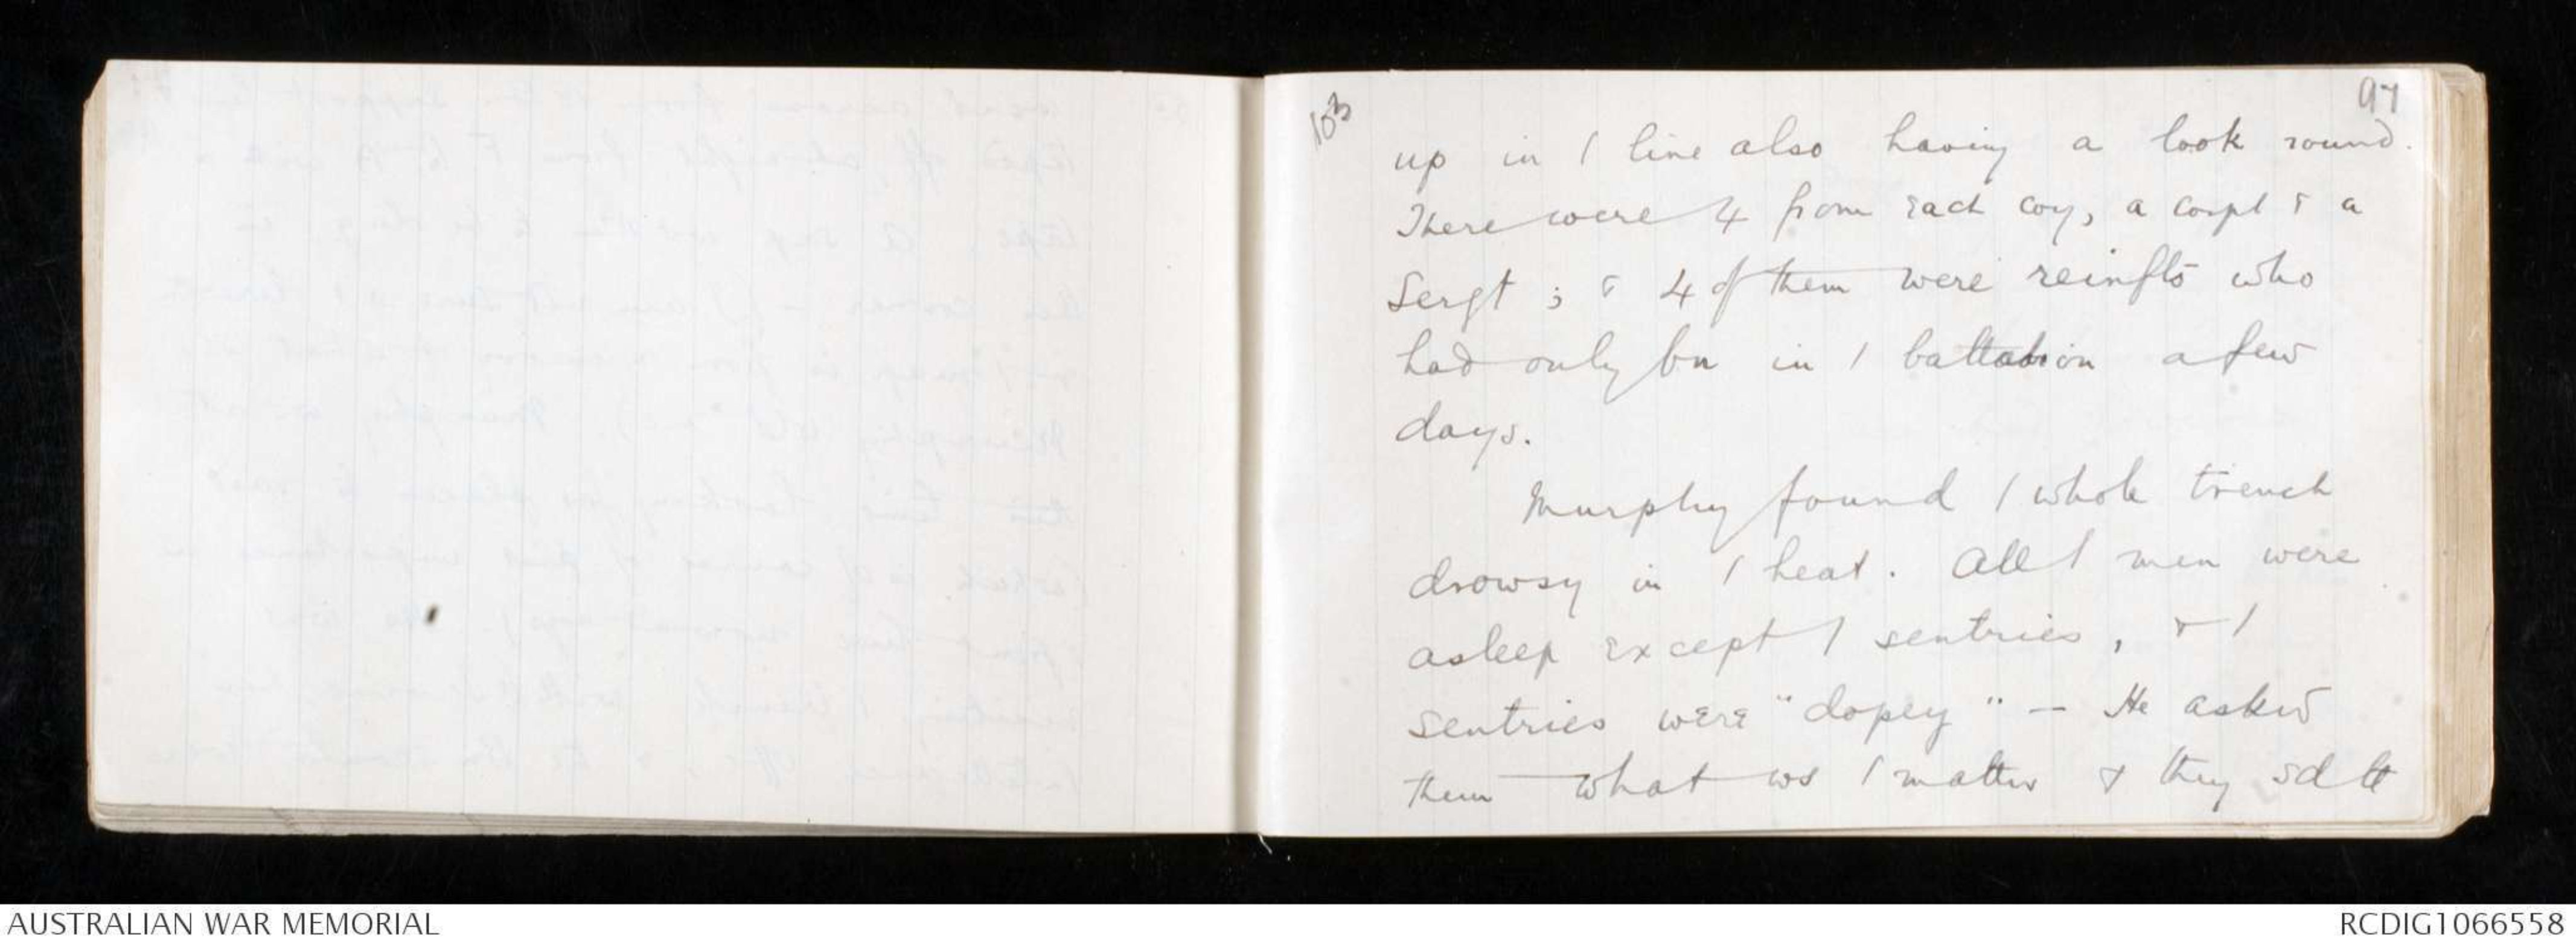 103
97
up in / line also having a look round.
There were 4 from each coy, a corpl & a
Sergt ; & 4 of them were reinfts who
had only bn in / battalion a few
days.
Murphy found / whole trench
drowsy in / heat. All / men were
asleep except / sentries, & /
sentries were "dopey" – He asked
them what ws / matter & they sd tt
AUSTRALIAN WAR MEMORIAL
RCDIG1066558